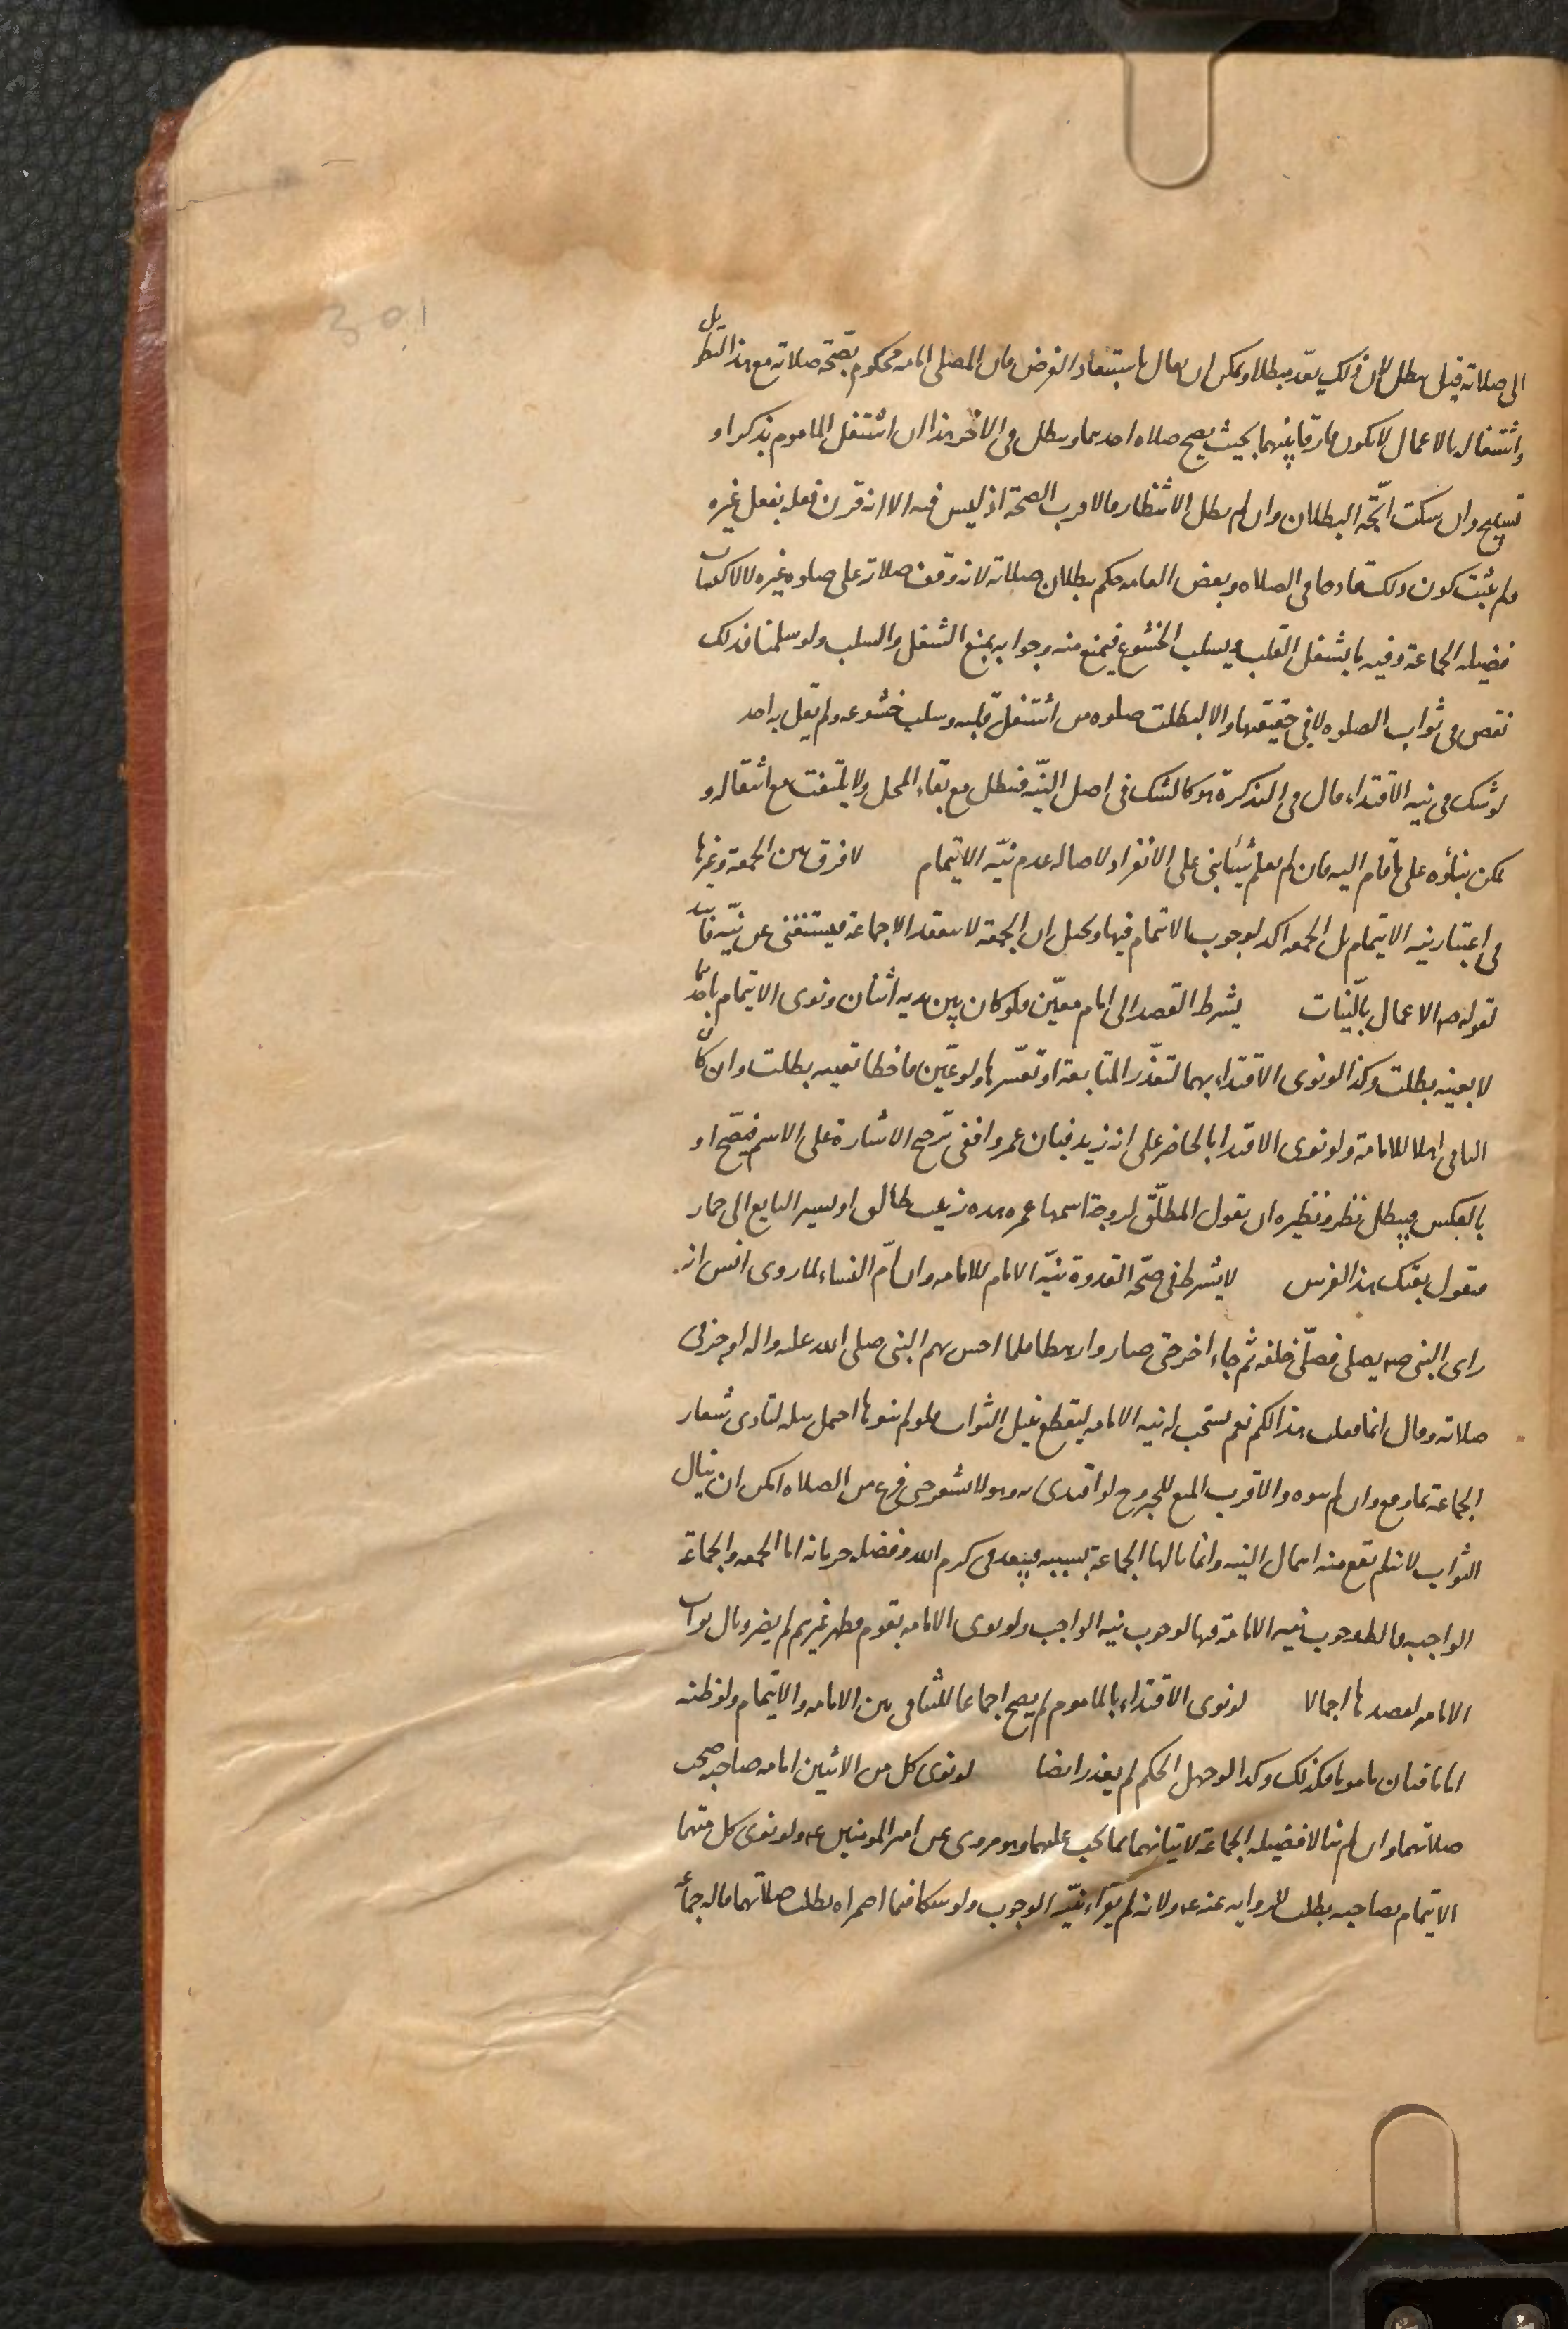 301
الى صلاته قيل بطل لان ذلك يعد مبطلا ويمكن ان يقال باستبعاد الفرض فان المصلى امامه محكوم بصحة صلاته مع هذا التطويل
واشتغاله بالاعمال لا يكون فارقا بينهما بحيث يصح صلاه احدهما ويبطل فى الاخر هذا ان اشتغل الماموم بذكر او
تسبيح وان سكت اتجه البطلان وان لم يطل الانتظار فالاقرب الصحة اذ ليس فيه الا انه قرن فعله بفعل غيره
ولم يثبت كون ذلك قادحا فى الصلاه وبعض العامه حكم ببطلان صلاته لانه وقف صلاته على صلوه غيره لا لاكتساب
فضيله الجماعة وفيه ما يشغل القلب ويسلب الخشوع فيمنع منه وجوابه بمنع الشغل والسلب ولو سلمنا فذلك
نقص فى ثواب الصلوه لا فى حقيقتها والا لبطلت صلوه من اشتغل قلبه وسلب خشوعه ولم يقل به احد
لو شك فى نيه الاقتداء قال فى التذكرة هو كالشك فى اصل النيه فيبطل مع بقاء المحل ولا يلتفت مع انتقاله و
يمكن بناؤه على ما قام اليه فان لم يعلم شيئا بنى على الانفراد لاصاله عدم نيه الايتمام لا فرق بين الجمعة وغيرها
فى اعتبار نيه الايتمام بل الجمعه اكد لوجوب الايتمام فيها وتخيل ان الجمعة لا تنعقد الا جماعة فيستغنى عن نيه فاسد
لقوله صم الاعمال بالنيات يشترط القصد الى امام معين فلو كان بين يديه اثنان ونوى الايتمام باحدهما
لا بعينه بطلت وكذا لو نوى الاقتداء بهما لتعذر المتابعة او تعسرها ولو عين فاخطا تعيينه بطلت وان كان
الثانى اهلا للامامة ولو نوى الاقتدا بالحاضر على انه زيد فبان عمروا ففى ترجيح الاشارة على الاسم فيصح او
بالعكس فيبطل نظر ونظيره ان يقول المطلق لزوجة اسمها عمره هذه زينب طالق او يشير البايع الى حمار
فيقول بعتك هذا الفرس لا يشترط فى صحة القدوة نيه الامام للامامه وان ام النساء لما روى انس انه
راى النبى صم يصلى فصلى خلفه ثم جاء اخر حتى صاروا رهطا فلما احس بهم النبى صلى الله عليه واله اوجز فى
صلاته وقال انما فعلت هذا لكم نعم يستحب له نيه الامامه ليقطع بنيل الثواب فلو لم ينوها احتمل نيله لتادى شعار
الجماعة بما وقع وان لم ينوه والاقرب المنع للجروح لو اقتدى به وهو لا يشعر حتى فرغ من الصلاه امكن ان ينال
الثواب لانه لم يقع منه اهمال النيه وانما نالها الجماعة بسببه فيبعد فى كرم الله وفضله حرمانه اما الجمعه والجماعة
الواجبه فالظ وجوب نيه الامامة فيها لوجوب نيه الواجب ولو نوى الامامه بقوم فظهر غيرهم لم يضر ونال ثواب
الامامه لقصدها اجمالا لو نوى الاقتداء بالماموم لم يصح اجماعا للتنافى بين الامامه والايتمام ولو ظنه
اماما فبان ماموما فكذلك وكذا لو جهل الحكم لم يعذر ايضا لو نوى كل من الاثنين امامه صاحبه صحت
صلاتهما وان لم ينالا فضيله الجماعة لاتيانهما بما يجب عليهما وهو مروى عن امير المومنين عم ولو نوى كل منهما
الايتمام بصاحبه بطلت للروايه عنه عم ولانه لم يقراء بنيه الوجوب ولو شكا فيما اضمراه بطلت صلاتهما قاله جماعة